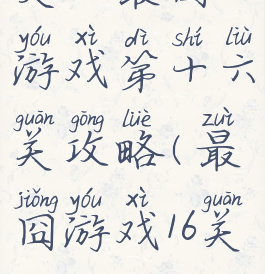 yóu xì dì shí liù
游戏第十六
guān gōng lüè zuì
关攻略(最
jiǒng yóu xì guān
囧游戏16关